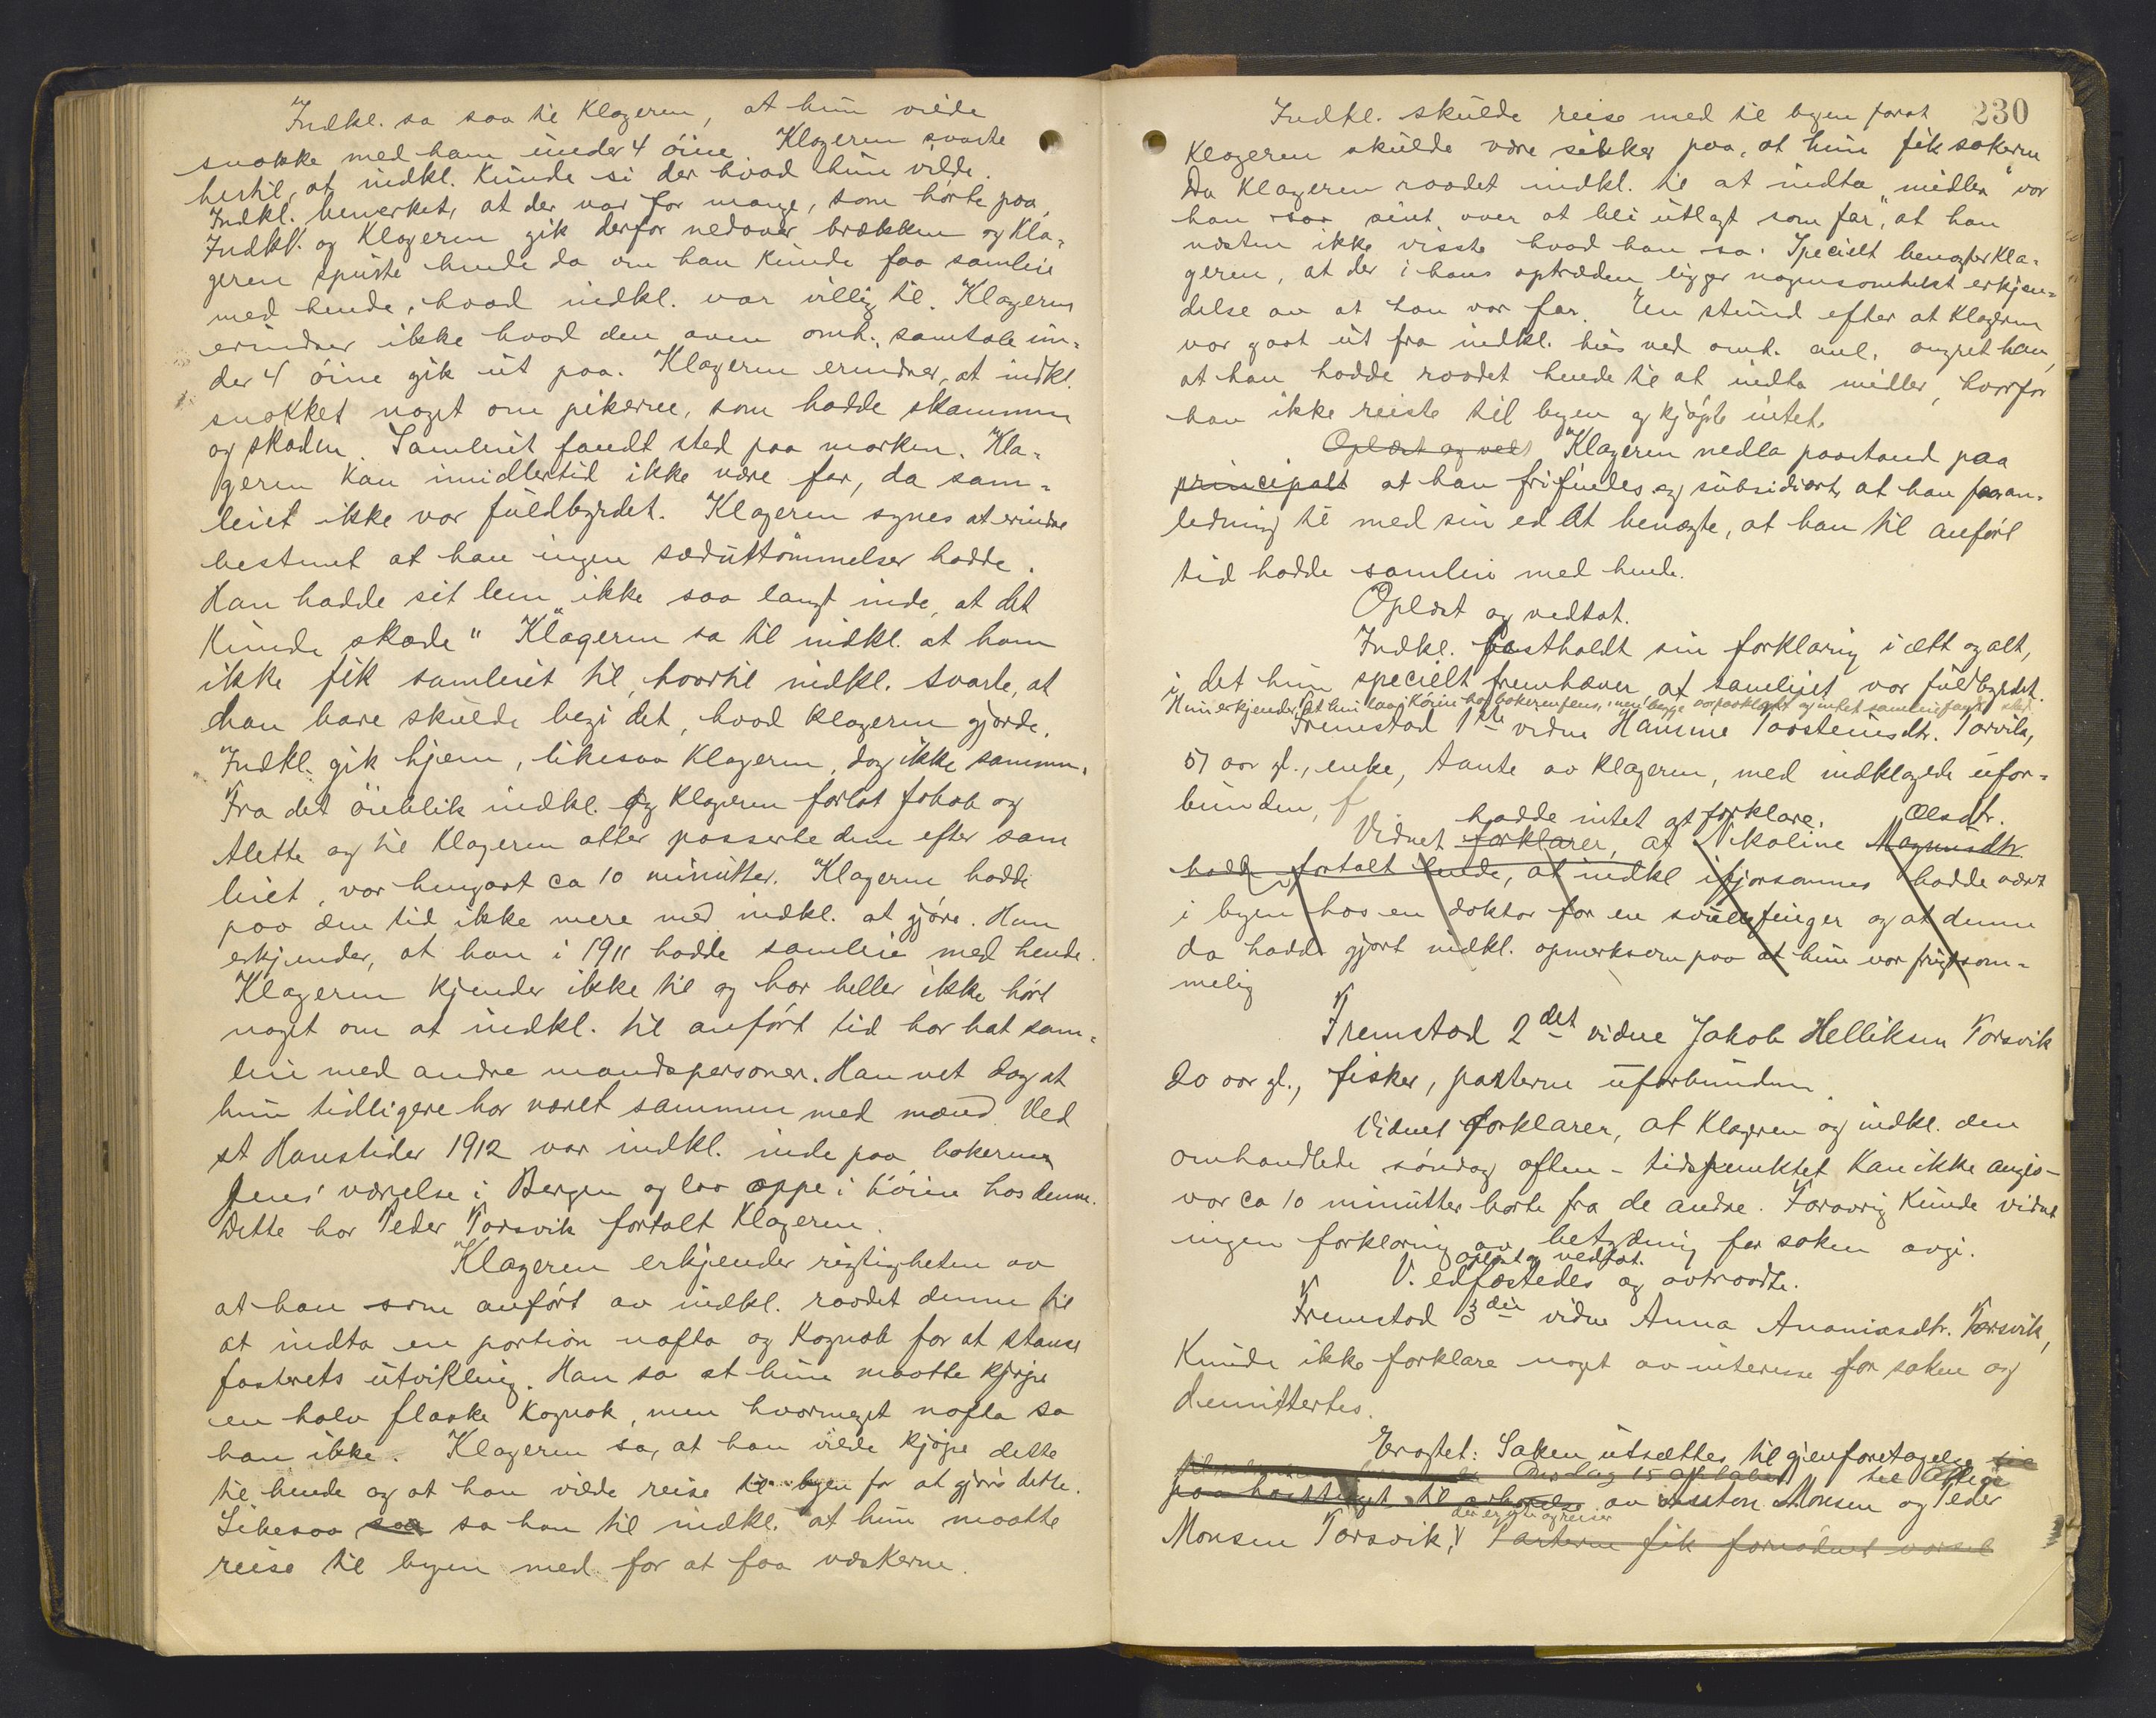 Indkl. sa saa til Klageren, at hun vilde
snakke med ham under 4 öine. Klageren svarte
hertil, at indkl. kunde si der hvad hun vilde.
Indkl. bemerket, at der var for mange, som hörte paa,
Indkl. og Klageren gik derfor nedover brækken og Kla-
geren spurte hende da om han kunde faa samleie
med hende, hvad indkl. var villig til. Klageren
erindrer ikke hvad den oven omh. samtale un-
der 4 öine gik ut paa. Klageren erindrer, at indkl.
snakket noget om pikerne, som hadde skammen
og skaden. Samleiet fandt sted paa marken. Kla-
geren kan imidlertid ikke være far, da sam-
leiet ikke var fuldbyrdet. Klageren synes at erindre
bestemt at han ingen sæduttömmelser hadde.
Han hadde sit lem "ikke saa langt inde, at det
kunde skade" Klageren sa til indkl. at ham
ikke fik samleiet til, hvortil indkl. svarte, at
han bare skulde begi det, hvad klageren gjorde.
Indkl. gik hjem, likesaa Klageren, dog ikke sammen.
Fra det öieblik indkl. og Klageren forlot Jakob og
Alette og til Klageren atter passerte dem efter sam
leiet, var hengaat ca 10 minutter. Klageren hadde
paa den tid ikke mere med indkl. at gjöre. Han
erkjender, at han i 1911 hadde samleie med hende.
Klageren kjender ikke til og har heller ikke hört
noget om at indkl. til anfört tid har hat sam-
leie med andre mandspersoner. Han vet dog at
hun tidligere har været sammen med mænd. Ved
st Hanstider 1912 var indkl. inde paa bakeren
Jens' værelse i Bergen og laa oppe i köien hos denne.
Dette har Peder Torsvik fortalt Klageren.
Klageren erkjender rigtigheten av
at han som anfört av indkl. raadet denne til
at indta en portion nafta og Kognak for at stanse
fosterets utvikling. Han sa at hun maatte kjöpe
en halv flaske Kognak, men hvormeget nafta sa
han ikke. Klageren sa, at han vilde kjöpe dette
til hende og at han vilde reise til byen for at gjöre dette.
Likesaa saa sa han til indkl. at hun maatte
reise til byen med for at faa væskerne.
230
Indkl. skulde reise med til byen forat
Klageren skulde være sikker paa, at hun fik sakerne
Da Klageren raadet indkl. til at indta "midler" var
han saa sint over at bli utlagt som far, at han
næsten ikke visste hvad han sa. Specielt benegter Kla-
geren, at der i hans optræden ligger nogensomhelst erkjen-
delse av at han var far. En stund efter at Klageren
var gaat ut fra indkl. hus ved omh. anl. angret han,
at han hadde raadet hende til at indta midler, hvorfor
han ikke reiste til byen og kjöpte intet.
Oplæst og vedt Klageren nedla paastand paa
principalt at han frifindes og subsidiært, at han faar an-
ledning til med sin ed at benegte, at han til anfört
tid hadde samleie med hende.
Oplæst og vedtat.
Indkl. fastholdt sin forklaring i ett og alt,
i det hun specielt fremhæver, at samleiet var fuldbyrdet.
Hun erkjender, at hun laa i köien hos bakeren Jens, men begge var paaklædt og intet samleie fandt sted.
Fremstod 1ste vidne Hansine Torsteinsdtr. Torvik,
51 aar gl., enke, tante av klageren, med indklagede ufor-
bunden,
hadde intet at forklare. Olsdtr.
Vidnet forklarer, at Nikoline Magnusdtr.
hadde fortalt hende, at indkl ifjorsommer hadde vært
i byen hos en doktor for en svullefinger og at denne
da hadde gjort indkl. opmerksom paa at hun var frugtsom-
melig
Fremstod 2det vidne Jakob Helliksen Torsvik
20 aar gl., fisker, parterne uforbunden.
Vidnet forklarer, at Klageren og indkl. den
omhandlede söndag aften - tidspunktet kan ikke angis -
var ca 10 minutter borte fra de andre. Forövrig kunde vidnet
ingen forklaring av betydning for saken avgi.
oplæst og vedtat.
V. edfæstedes og avtraadte.
Fremstod 3die vidne Anna Ananiasdtr. Torsvik,
Kunde ikke forklare noget av interesse for saken og
demittertes.
Eragtet: Saken utsættes til gjenforetagelse
Onsdag 15 oktober til
paa av Monsen og Peder
Monsen Torsvik, Parterne fik fornödent varsel